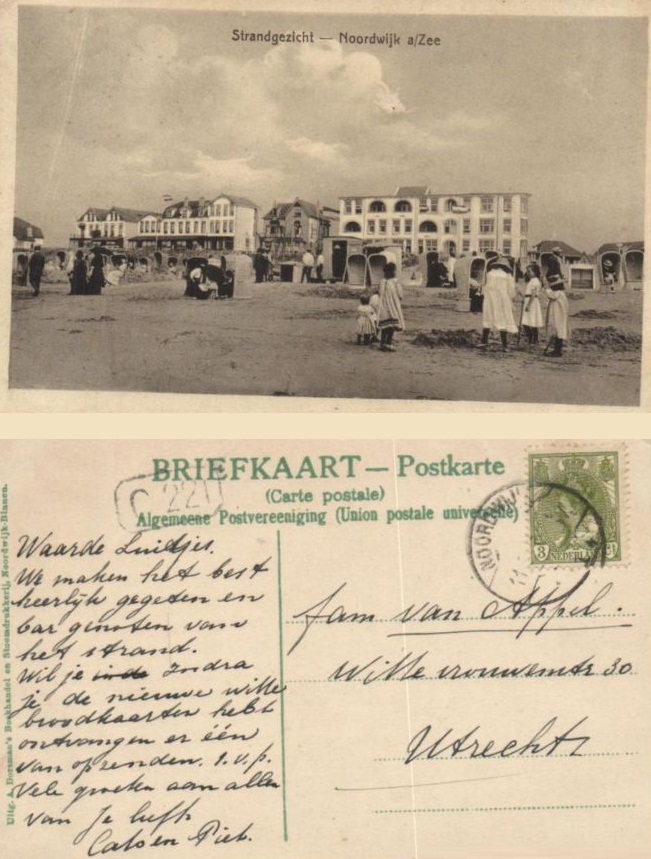 Strandgezicht — Noordwijk a/Zee
BRIEFKAART — Postkarte
(Carte postale)
Algemeene Postvereeniging (Union postale universelle)
C 221
NOORDWIJK
3 ct
NEDERLAND
Uitg. A. Dorsman's Boekhandel en Stoomdrukkerij, Noordwijk-Binnen.
Waarde Luidjes.
We maken het best
heerlijk gegeten en
genoten van
het strand.
Wil je in de Zodra
je de nieuwe witte
broodkaarten hebt
ontvangen er één
van opzenden. s.v.p.
Vele groeten aan allen
van Je liefh
Cato en Piet.
fam van Appel.
Witte vrouwenstr 30
Utrecht